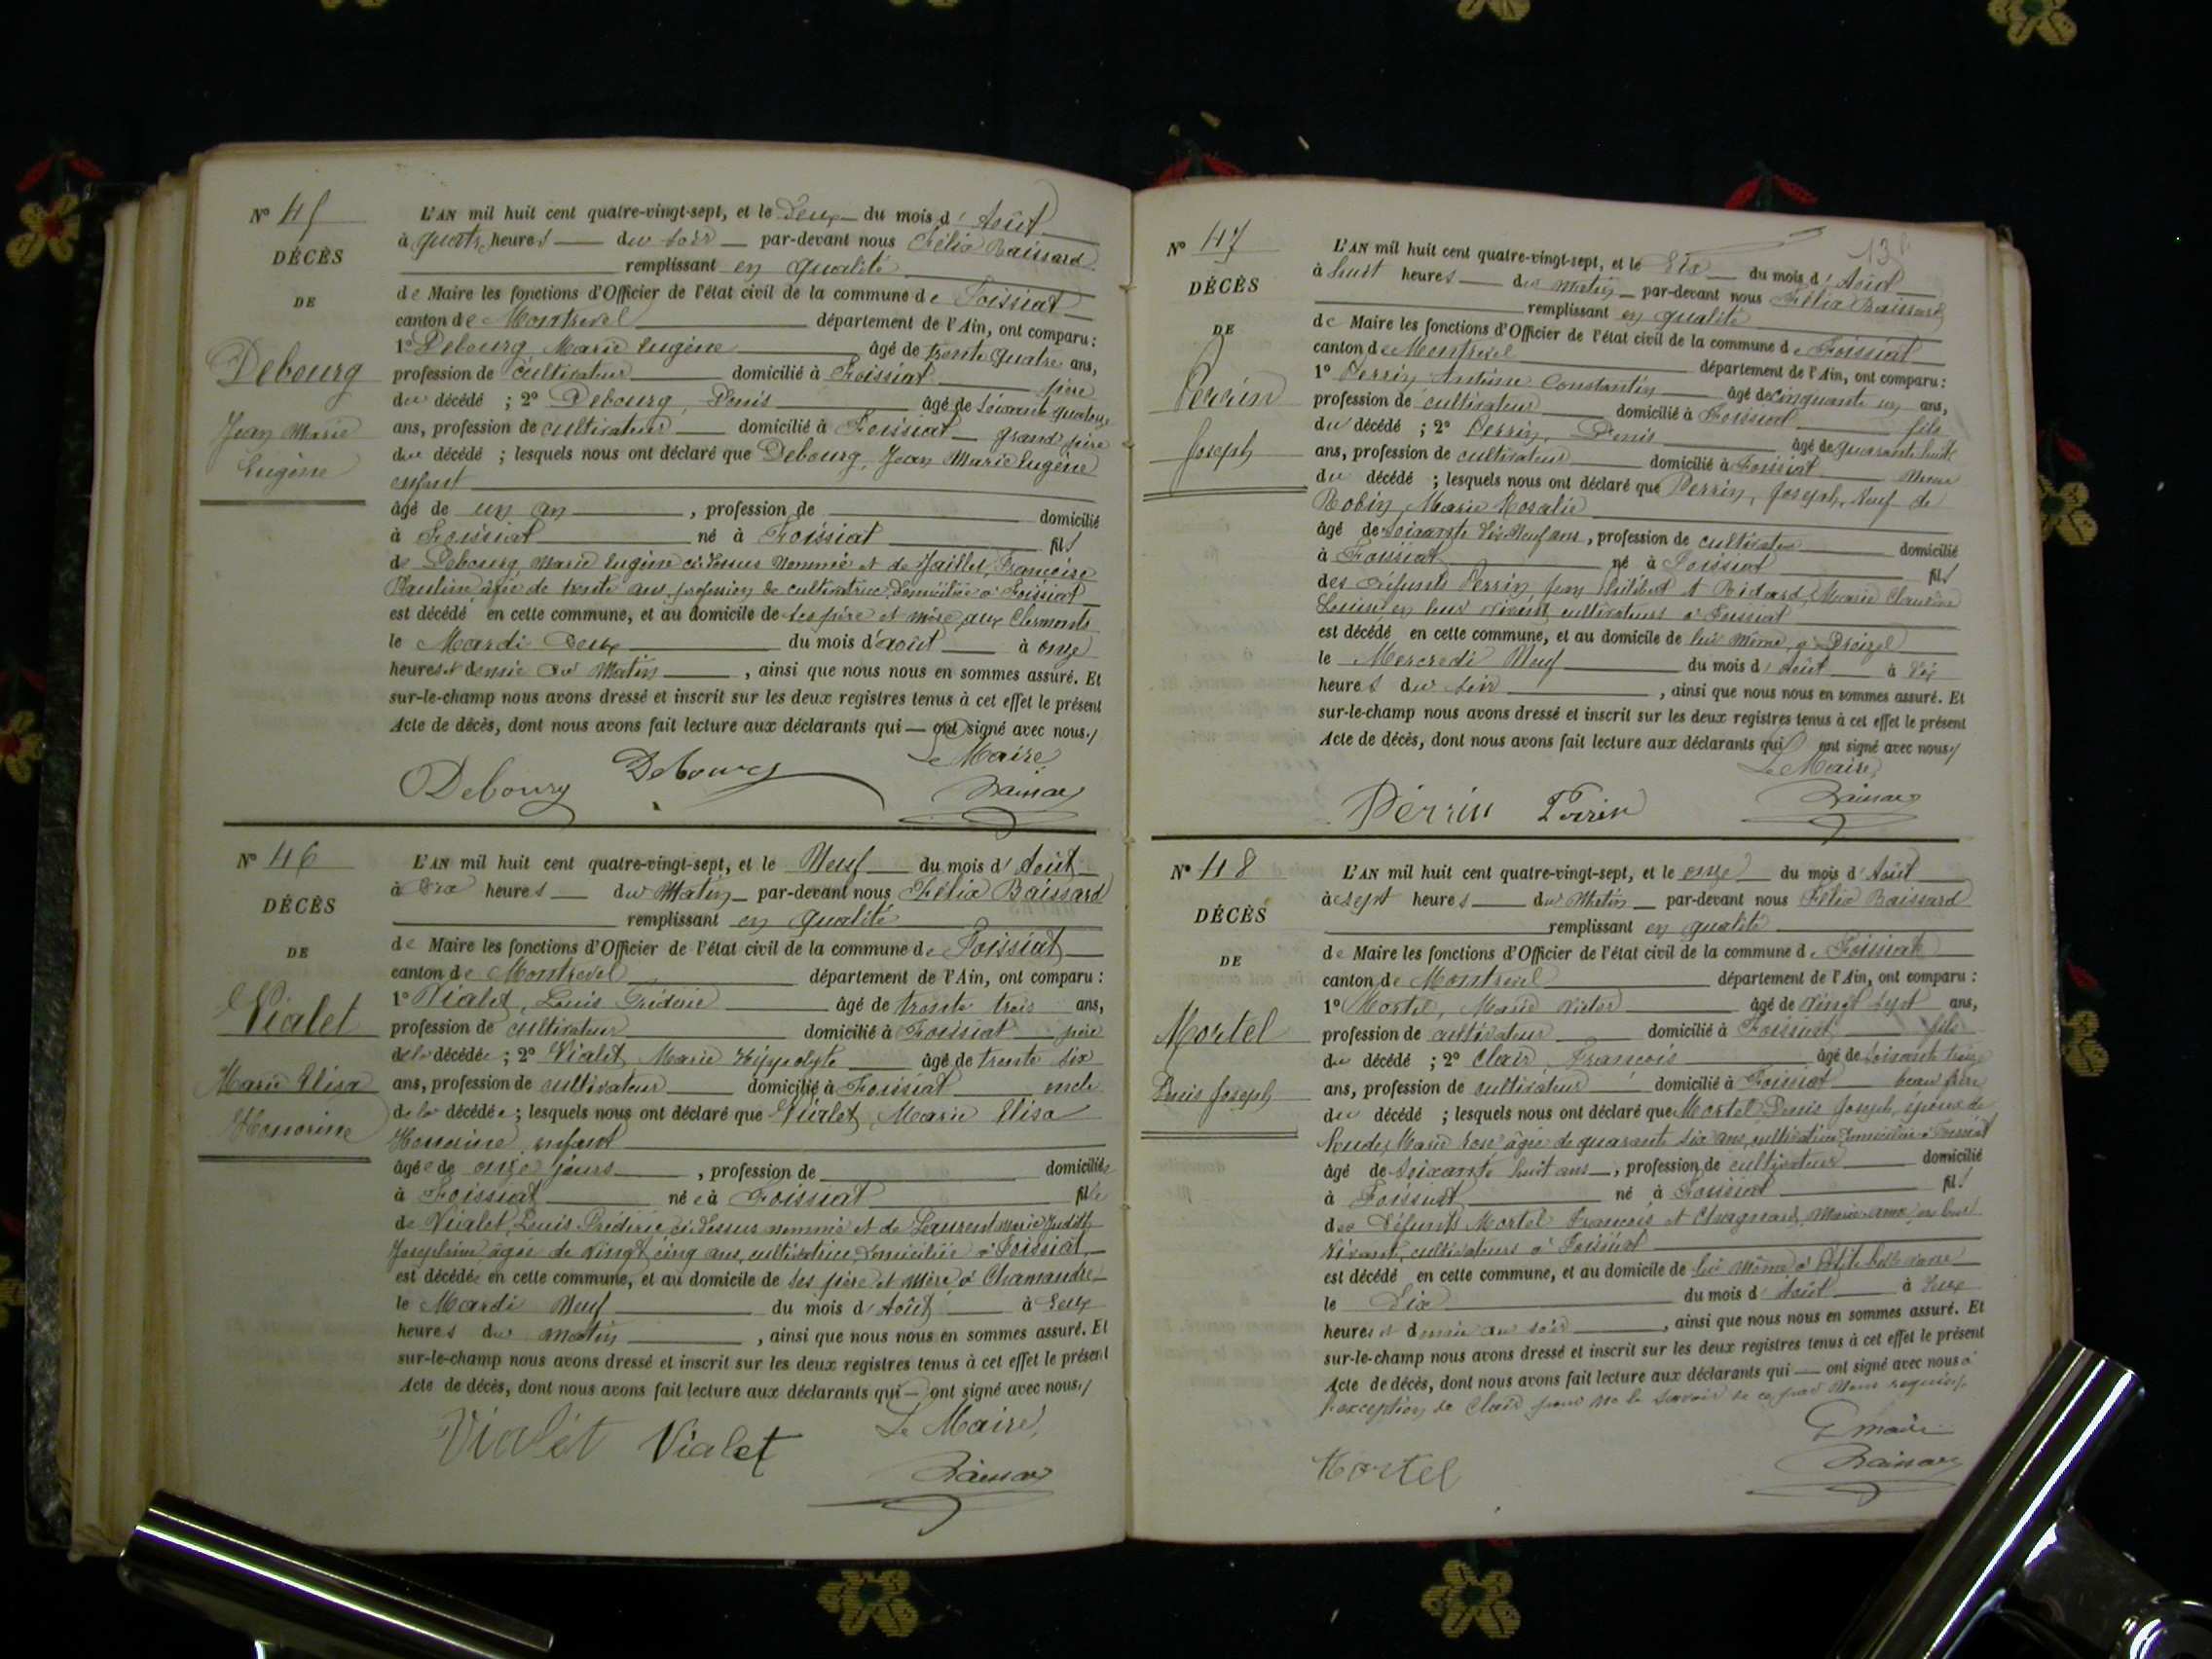 N° 45
DÉCÈS
DE
Debourg
Jean Marie
Eugène
L'AN mil huit cent quatre-vingt-sept, et le Deux du mois d'Août
à quatre heures du soir par-devant nous Félix Baissard
remplissant en qualité
de Maire les fonctions d'Officier de l'état civil de la commune de Foissiat
canton de Montrevel département de l'Ain, ont comparu :
1° Debourg Marie Eugène âgé de trente quatre ans,
profession de cultivateur domicilié à Foissiat père
du décédé ; 2° Debourg, Denis âgé de soixante quatorze
ans, profession de cultivateur domicilié à Foissiat grand père
du décédé ; lesquels nous ont déclaré que Debourg, Jean Marie Eugène
enfant
âgé de un an , profession de domicilié
à Foissiat né à Foissiat fils
de Debourg, Marie Eugène ci-dessus nommé et de Jaillet, Françoise
Pauline âgée de trente ans, profession de cultivatrice, domiciliée à Foissiat
est décédé en cette commune, et au domicile de ses père et mère aux Clermonts
le Mardi Deux du mois d'août à onze
heures et demie du Matin , ainsi que nous nous en sommes assuré. Et
sur-le-champ nous avons dressé et inscrit sur les deux registres tenus à cet effet le présent
Acte de décès, dont nous avons fait lecture aux déclarants qui — ont signé avec nous./
Le Maire
Debourg Debourg Baissard
N° 46
DÉCÈS
DE
Vialet
Marie Elisa
Honorine
L'AN mil huit cent quatre-vingt-sept, et le Neuf du mois d'Août
à Dix heures du Matin par-devant nous Félix Baissard
remplissant en qualité
de Maire les fonctions d'Officier de l'état civil de la commune de Foissiat
canton de Montrevel département de l'Ain, ont comparu :
1° Vialet, Louis Fréderic âgé de trente trois ans,
profession de cultivateur domicilié à Foissiat père
de la décédée ; 2° Vialet Marie Hippolyte âgé de trente six
ans, profession de cultivateur domicilié à Foissiat oncle
de la décédée ; lesquels nous ont déclaré que Vialet, Marie Elisa
Honorine enfant
âgée de onze jours , profession de domiciliée
à Foissiat née à Foissiat fille
de Vialet, Louis Fréderic, ci-dessus nommé et de Laurent Marie Judith
Josephine, âgée de vingt cinq ans, cultivatrice, domiciliée à Foissiat
est décédée en cette commune, et au domicile de ses père et mère à Chamandre
le Mardi Neuf du mois d'Août à Deux
heures du matin , ainsi que nous nous en sommes assuré. Et
sur-le-champ nous avons dressé et inscrit sur les deux registres tenus à cet effet le présent
Acte de décès, dont nous avons fait lecture aux déclarants qui — ont signé avec nous./
Le Maire,
Vialet Vialet Baissard
13
N° 47
DÉCÈS
DE
Perrin
Joseph
L'AN mil huit cent quatre-vingt-sept, et le Dix du mois d'Août
à huit heures du Matin par-devant nous Félix Baissard
remplissant en qualité
de Maire les fonctions d'Officier de l'état civil de la commune de Foissiat
canton de Montrevel département de l'Ain, ont comparu :
1° Perrin Antoine Constantin âgé de cinquante un ans,
profession de cultivateur domicilié à Foissiat fils
du décédé ; 2° Perrin, Denis âgé de quarante huit
ans, profession de cultivateur domicilié à Foissiat
du décédé ; lesquels nous ont déclaré que Perrin, Joseph, Veuf de
Robin, Marie Rosalie
âgé de soixante dix Neuf ans , profession de cultivateur domicilié
à Foissiat né à Foissiat fils
des défunts Perrin Jean Philibert et Marie Claudine
en leur vivant cultivateurs à Foissiat
est décédé en cette commune, et au domicile de lui même, à
le Mercredi Neuf du mois d'Août à dix
heures du soir , ainsi que nous nous en sommes assuré. Et
sur-le-champ nous avons dressé et inscrit sur les deux registres tenus à cet effet le présent
Acte de décès, dont nous avons fait lecture aux déclarants qui ont signé avec nous./
Le Maire,
Perrin Perrin Baissard
N° 48
DÉCÈS
DE
Mortel
Denis Joseph
L'AN mil huit cent quatre-vingt-sept, et le onze du mois d'Août
à sept heures du Matin par-devant nous Félix Baissard
remplissant en qualité
de Maire les fonctions d'Officier de l'état civil de la commune de Foissiat
canton de Montrevel département de l'Ain, ont comparu :
1° Mortel, Marie Victor âgé de vingt sept ans,
profession de cultivateur domicilié à Foissiat fils
du décédé ; 2° Clair, François âgé de soixante treize
ans, profession de cultivateur domicilié à Foissiat beau frère
du décédé ; lesquels nous ont déclaré que Mortel Denis Joseph, époux de
Marie Rose âgée de quarante six ans, cultivatrice, domiciliée à Foissiat
âgé de soixante huit ans , profession de cultivateur domicilié
à Foissiat né à Foissiat fils
des défunts Mortel François et Chagnard, Marie Anne en leur
vivant, cultivateurs à Foissiat
est décédé en cette commune, et au domicile de lui même à
le Dix du mois d'Août à Deux
heures et demie du soir , ainsi que nous nous en sommes assuré. Et
sur-le-champ nous avons dressé et inscrit sur les deux registres tenus à cet effet le présent
Acte de décès, dont nous avons fait lecture aux déclarants qui — ont signé avec nous à
l'exception de Clair pour ne le savoir de ce par Nous requis./
Le maire
Mortel Baissard